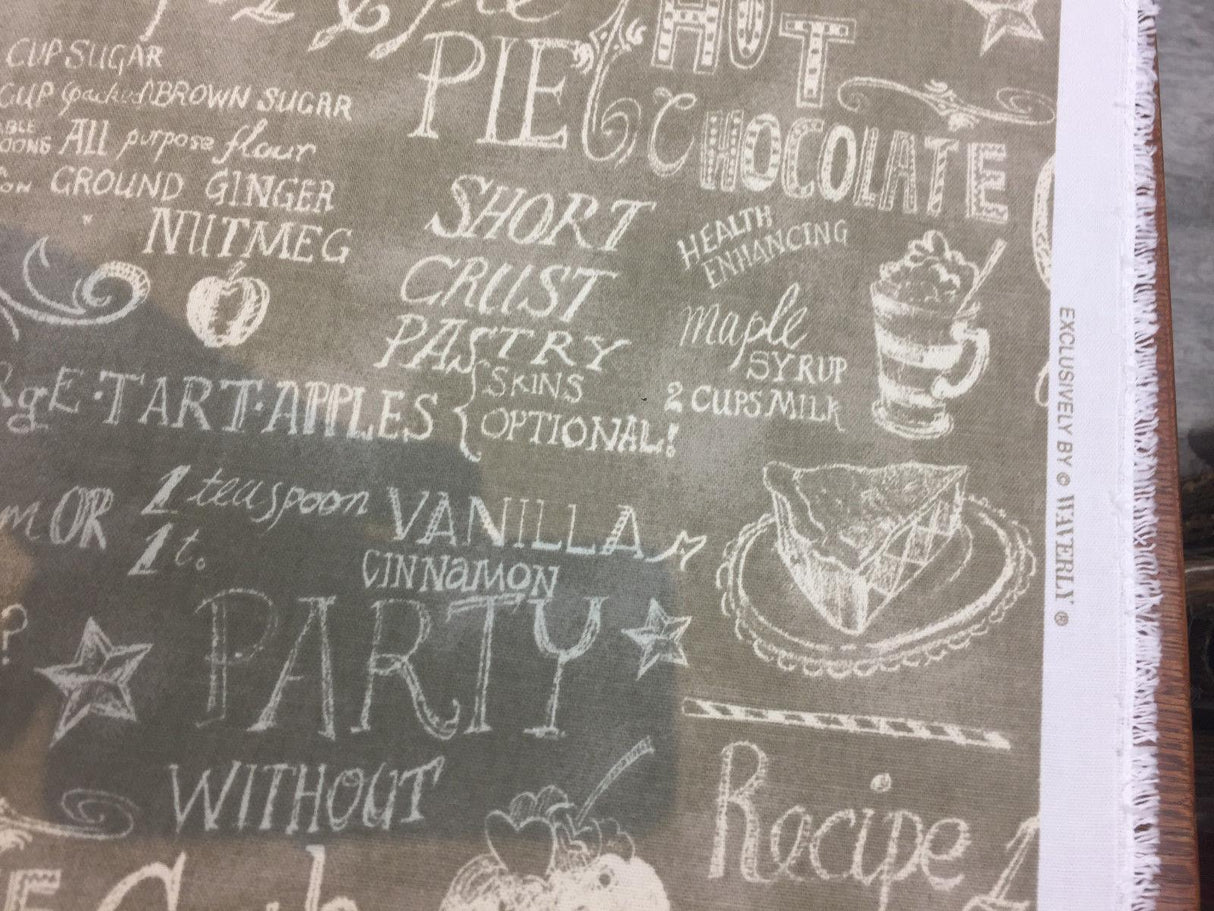 PIE
HOT
CHOCOLATE
CUP SUGAR
CUP (packed) BROWN SUGAR
All purpose flour
GROUND GINGER
NUTMEG
SHORT
CRUST
PASTRY
HEALTH
ENHANCING
maple
SYRUP
2 CUPS MILK
TART·APPLES
SKINS
OPTIONAL!
OR 1 teaspoon VANILLA
1 t.
CINNAMON
PARTY
WITHOUT
Recipe 1
EXCLUSIVELY BY © WAVERLY ®